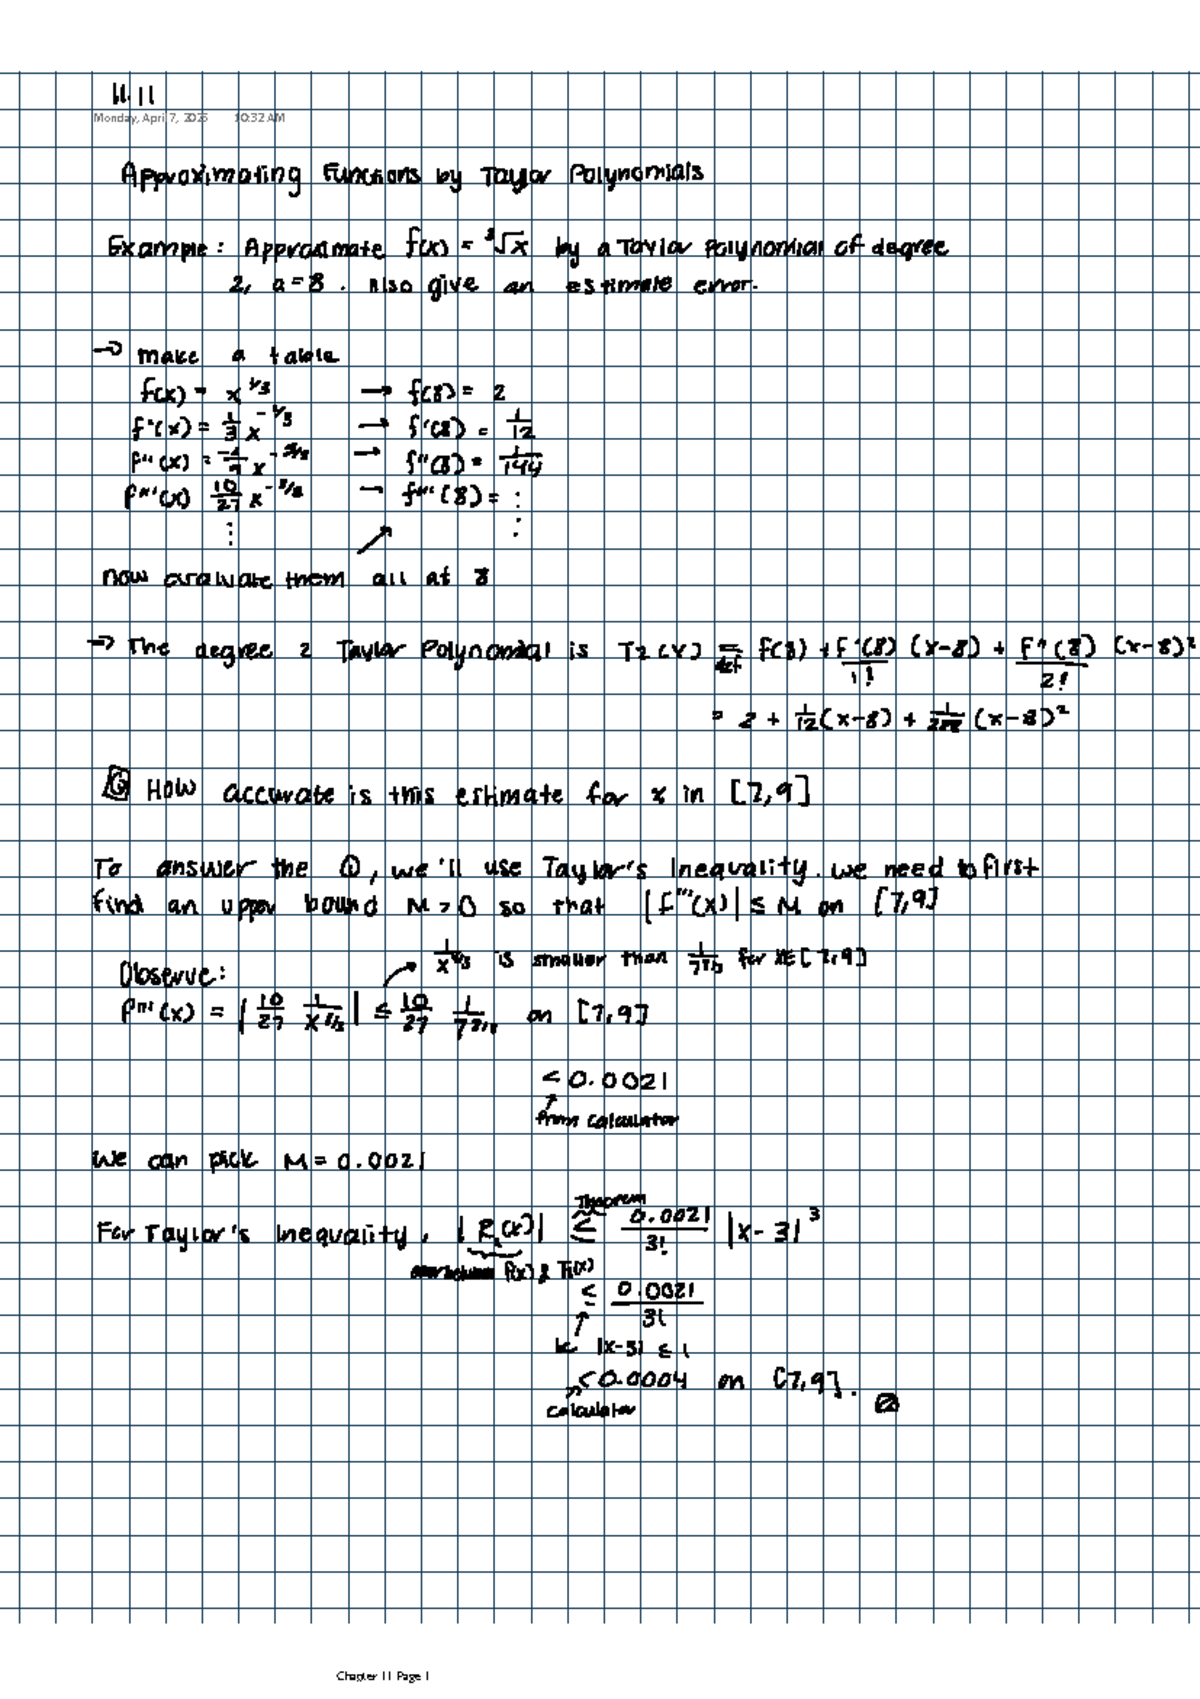 11.11
Monday, April 7, 2025 10:32 AM
Approximating Functions by Taylor Polynomials
Example: Approximate f(x) = ³√x by a Taylor Polynomial of degree
2, a=8. Also give an estimate error.
→ make a table
f(x) = x^1/3 → f(8) = 2
f'(x) = 1/3 x → f'(8) = 1/12
f''(x) = x → f''(8) = 1/144
f'''(x) 10/27 x → f'''(8) = ⋮
⋮
now evaluate them all at 8
→ The degree 2 Taylor Polynomial is T2(x) =def f(8) + f'(8)/1! (x-8) + f''(8)/2! (x-8)²
= 2 + 1/12(x-8) + 1/288 (x-8)²
Q How accurate is this estimate for x in [7,9]
To answer the Q, we'll use Taylor's Inequality. we need to first
find an upper bound M>0 so that |f'''(x)| ≤ M on [7,9]
1/x^8/3 is smaller than 1/7^8/3 for x∈[7,9]
Observe:
f'''(x) = |10/27 1/x^8/3| ≤ 10/27 1/7^8/3 on [7,9]
< 0.0021
from calculator
We can pick M = 0.0021
Theorem
For Taylor's Inequality, |R₂(x)| ≤ 0.0021/3! |x-3|³
f(x) & T₂(x)
≤ 0.0021/3!
bc |x-3| ≤ 1
< 0.0004 on [7,9].
calculator
Chapter 11 Page 1